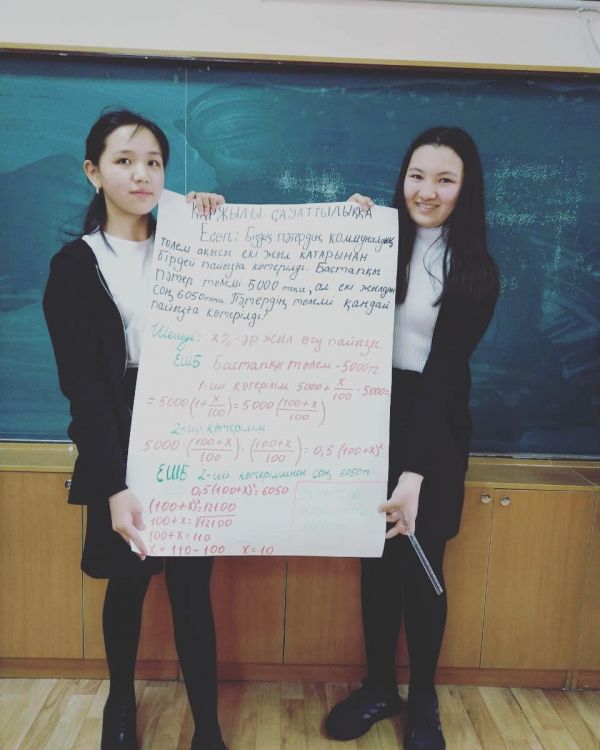 ҚАРЖЫЛЫ САУАТТЫЛЫҚҚА
Есеп: Біздің пәтердің коммуналдық
төлем ақысы екі жыл қатарынан
бірдей пайызға көтерілді. Бастапқы
пәтер төлемі 5000 теңге, ал екі жылдан
соң 6050теңге. Пәтердің төлемі қандай
пайызға көтерілді?
Шешуі: x% - әр жыл өсу пайызы
ЕШБ Бастапқы төлем - 5000т
1-ші көтерілім 5000 + x/100 · 5000 =
= 5000(1 + x/100) = 5000((100+x)/100)
2-ші көтерілім
5000 · ((100+x)/100) · ((100+x)/100) = 0,5(100+x)²
ЕШБ 2-ші көтерілімнен соң 6050т
0,5(100+x)² = 6050
(100+x)² = 12100
100+x = √12100
100+x = 110
x = 110 - 100 x = 10